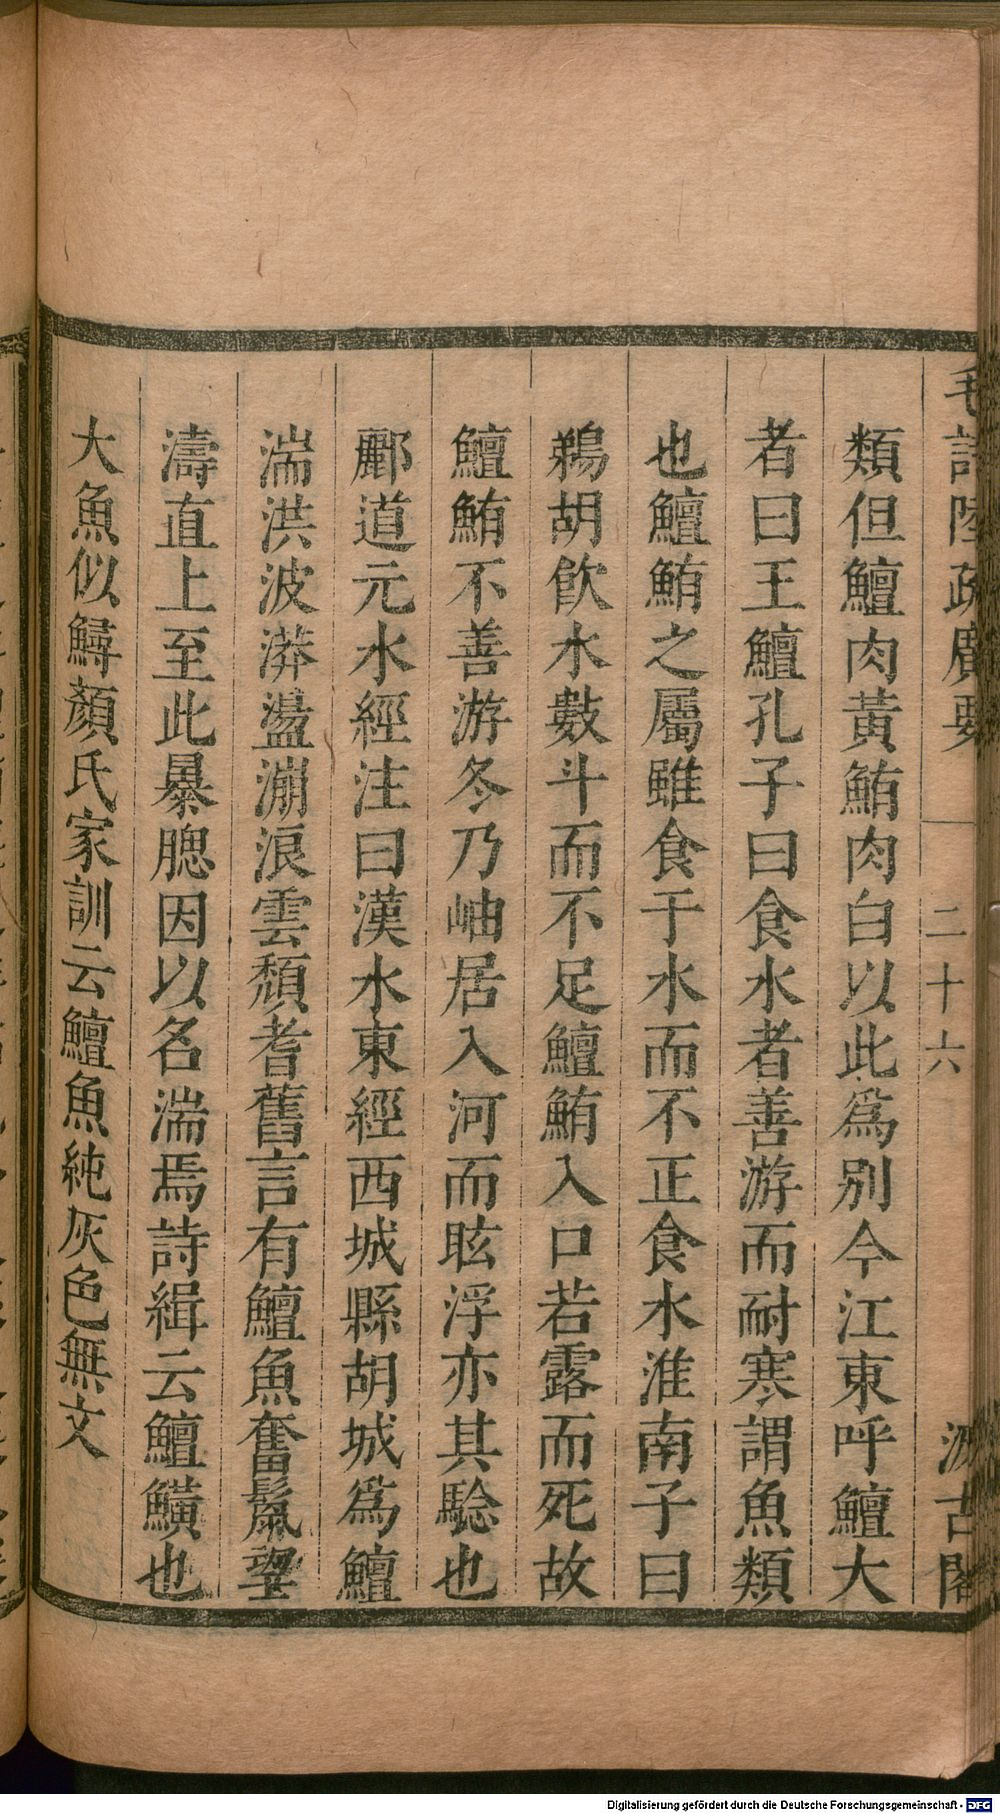 毛詩陸疏廣要 二十六 汲古閣
類但鱣肉黃鮪肉白以此為別今江東呼鱣大
者曰王鱣孔子曰食水者善游而耐寒謂魚類
也鱣鮪之屬雖食于水而不正食水淮南子曰
鵜胡飲水數斗而不足鱣鮪入口若露而死故
鱣鮪不善游冬乃岫居入河而眩浮亦其驗也
酈道元水經注曰漢水東經西城縣胡城為鱣
湍洪波漭盪漰浪雲頹耆舊言有鱣魚奮鬣望
濤直上至此暴腮因以名湍焉詩緝云鱣鱑也
大魚似鱘顏氏家訓云鱣魚純灰色無文
Digitalisierung gefördert durch die Deutsche Forschungsgemeinschaft - DFG